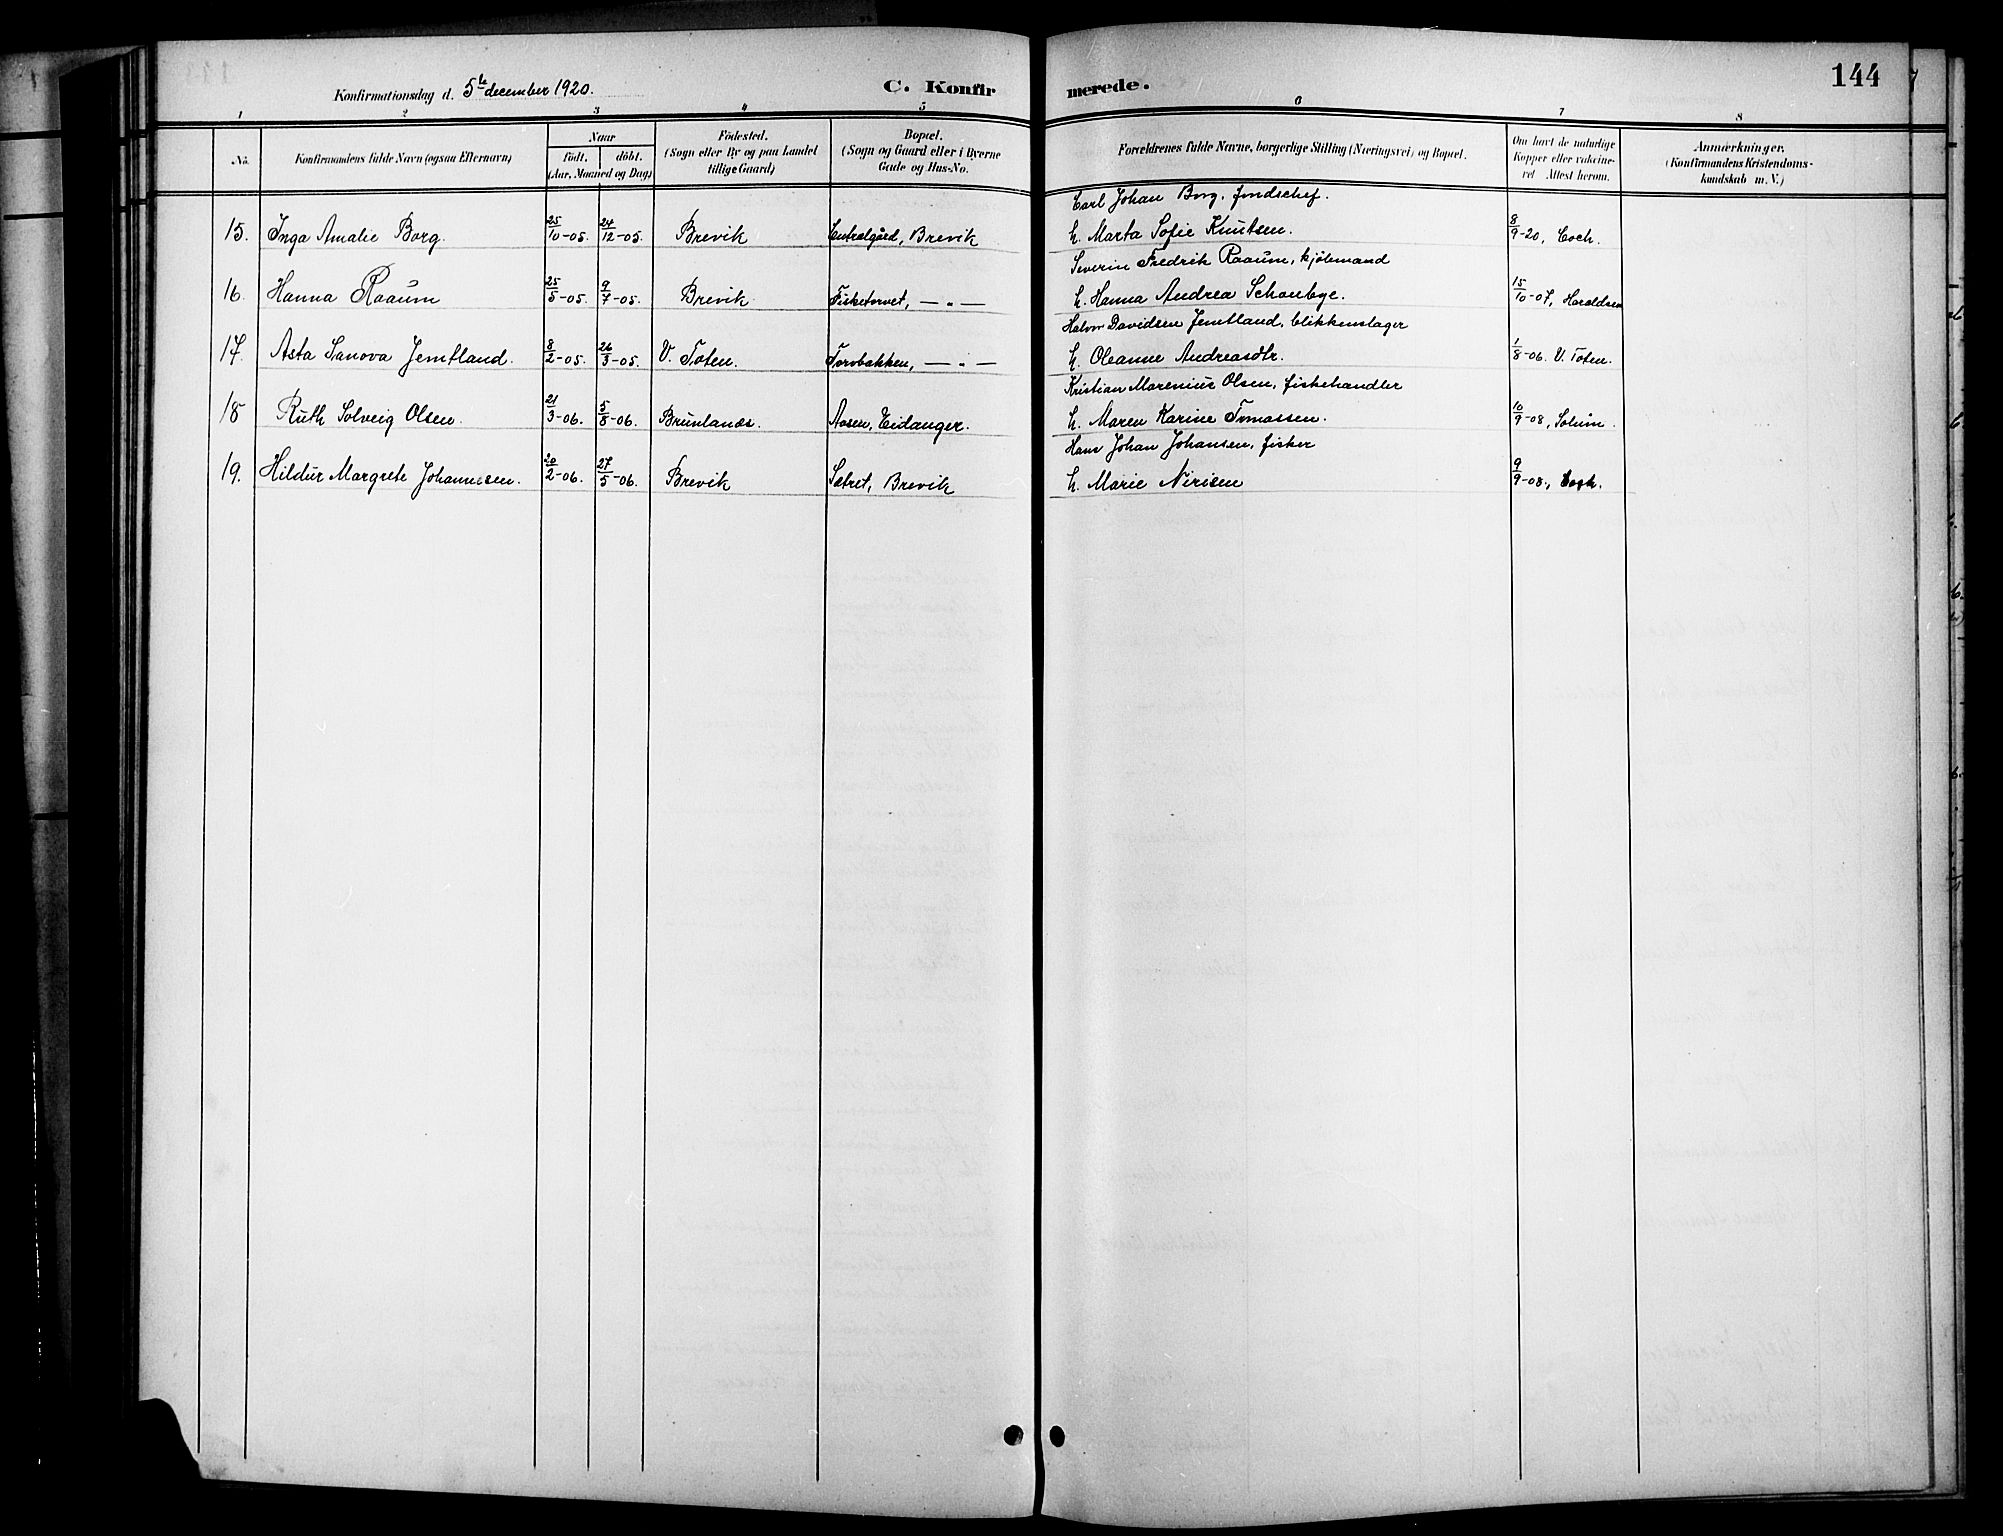 Konfirmationsdag d. 5te december 1920.
C. Konfir
merede.
144
1 2 3 4 5 6 7 8
No.
Konfirmandens fulde Navn (ogsaa Efternavn)
Naar
födt. döbt.
(Aar, Maaned og Dag)
Födested.
(Sogn eller By og paa Landet
tillige Gaard)
Bopæl.
(Sogn og Gaard eller i Byerne
Gade og Hus-No.
Forældrenes fulde Navne, borgerlige Stilling (Næringsvei) og Bopæl.
Om havt de naturlige
Kopper eller vakcine-
ret Attest herom.
Anmærkninger.
(Konfirmandens Kristendoms-
kundskab m. V.)
Carl Johan Borg,
15. Inga Amalie Borg. 25/10-05. 24/12-05. Brevik Centralgård, Brevik h. Marta Sofie Knutsen. 8/9-20, Coch.
Severin Fredrik Raaum, kjölemand
16. Hanna Raaum 25/5-05. 9/7-05. Brevik Fisketorvet, — " — h. Hanna Andrea Schoubye. 15/10-07, Haraldsen
Halvor Davidsen Jemtland, blikkenslager
17. Asta Sanova Jemtland. 8/2-05. 26/3-05. V. Toten. Torvbakken, — " — h. Oleanne Andreasdtr. 1/8-06. V. Toten.
Kristian Marenius Olsen, fiskehandler
18 Ruth Solveig Olsen. 21/3-06. 5/8-06. Brunlanæs. Aasen, Eidanger. h. Maren Karine Tomassen. 10/9-08, Solum.
Hans Johan Johansen, fisker
19. Hildur Margrete Johannesen. 20/2-06. 27/5-06. Brevik Sætret, Brevik h. Marie Nirisen 9/9-08, Coch.